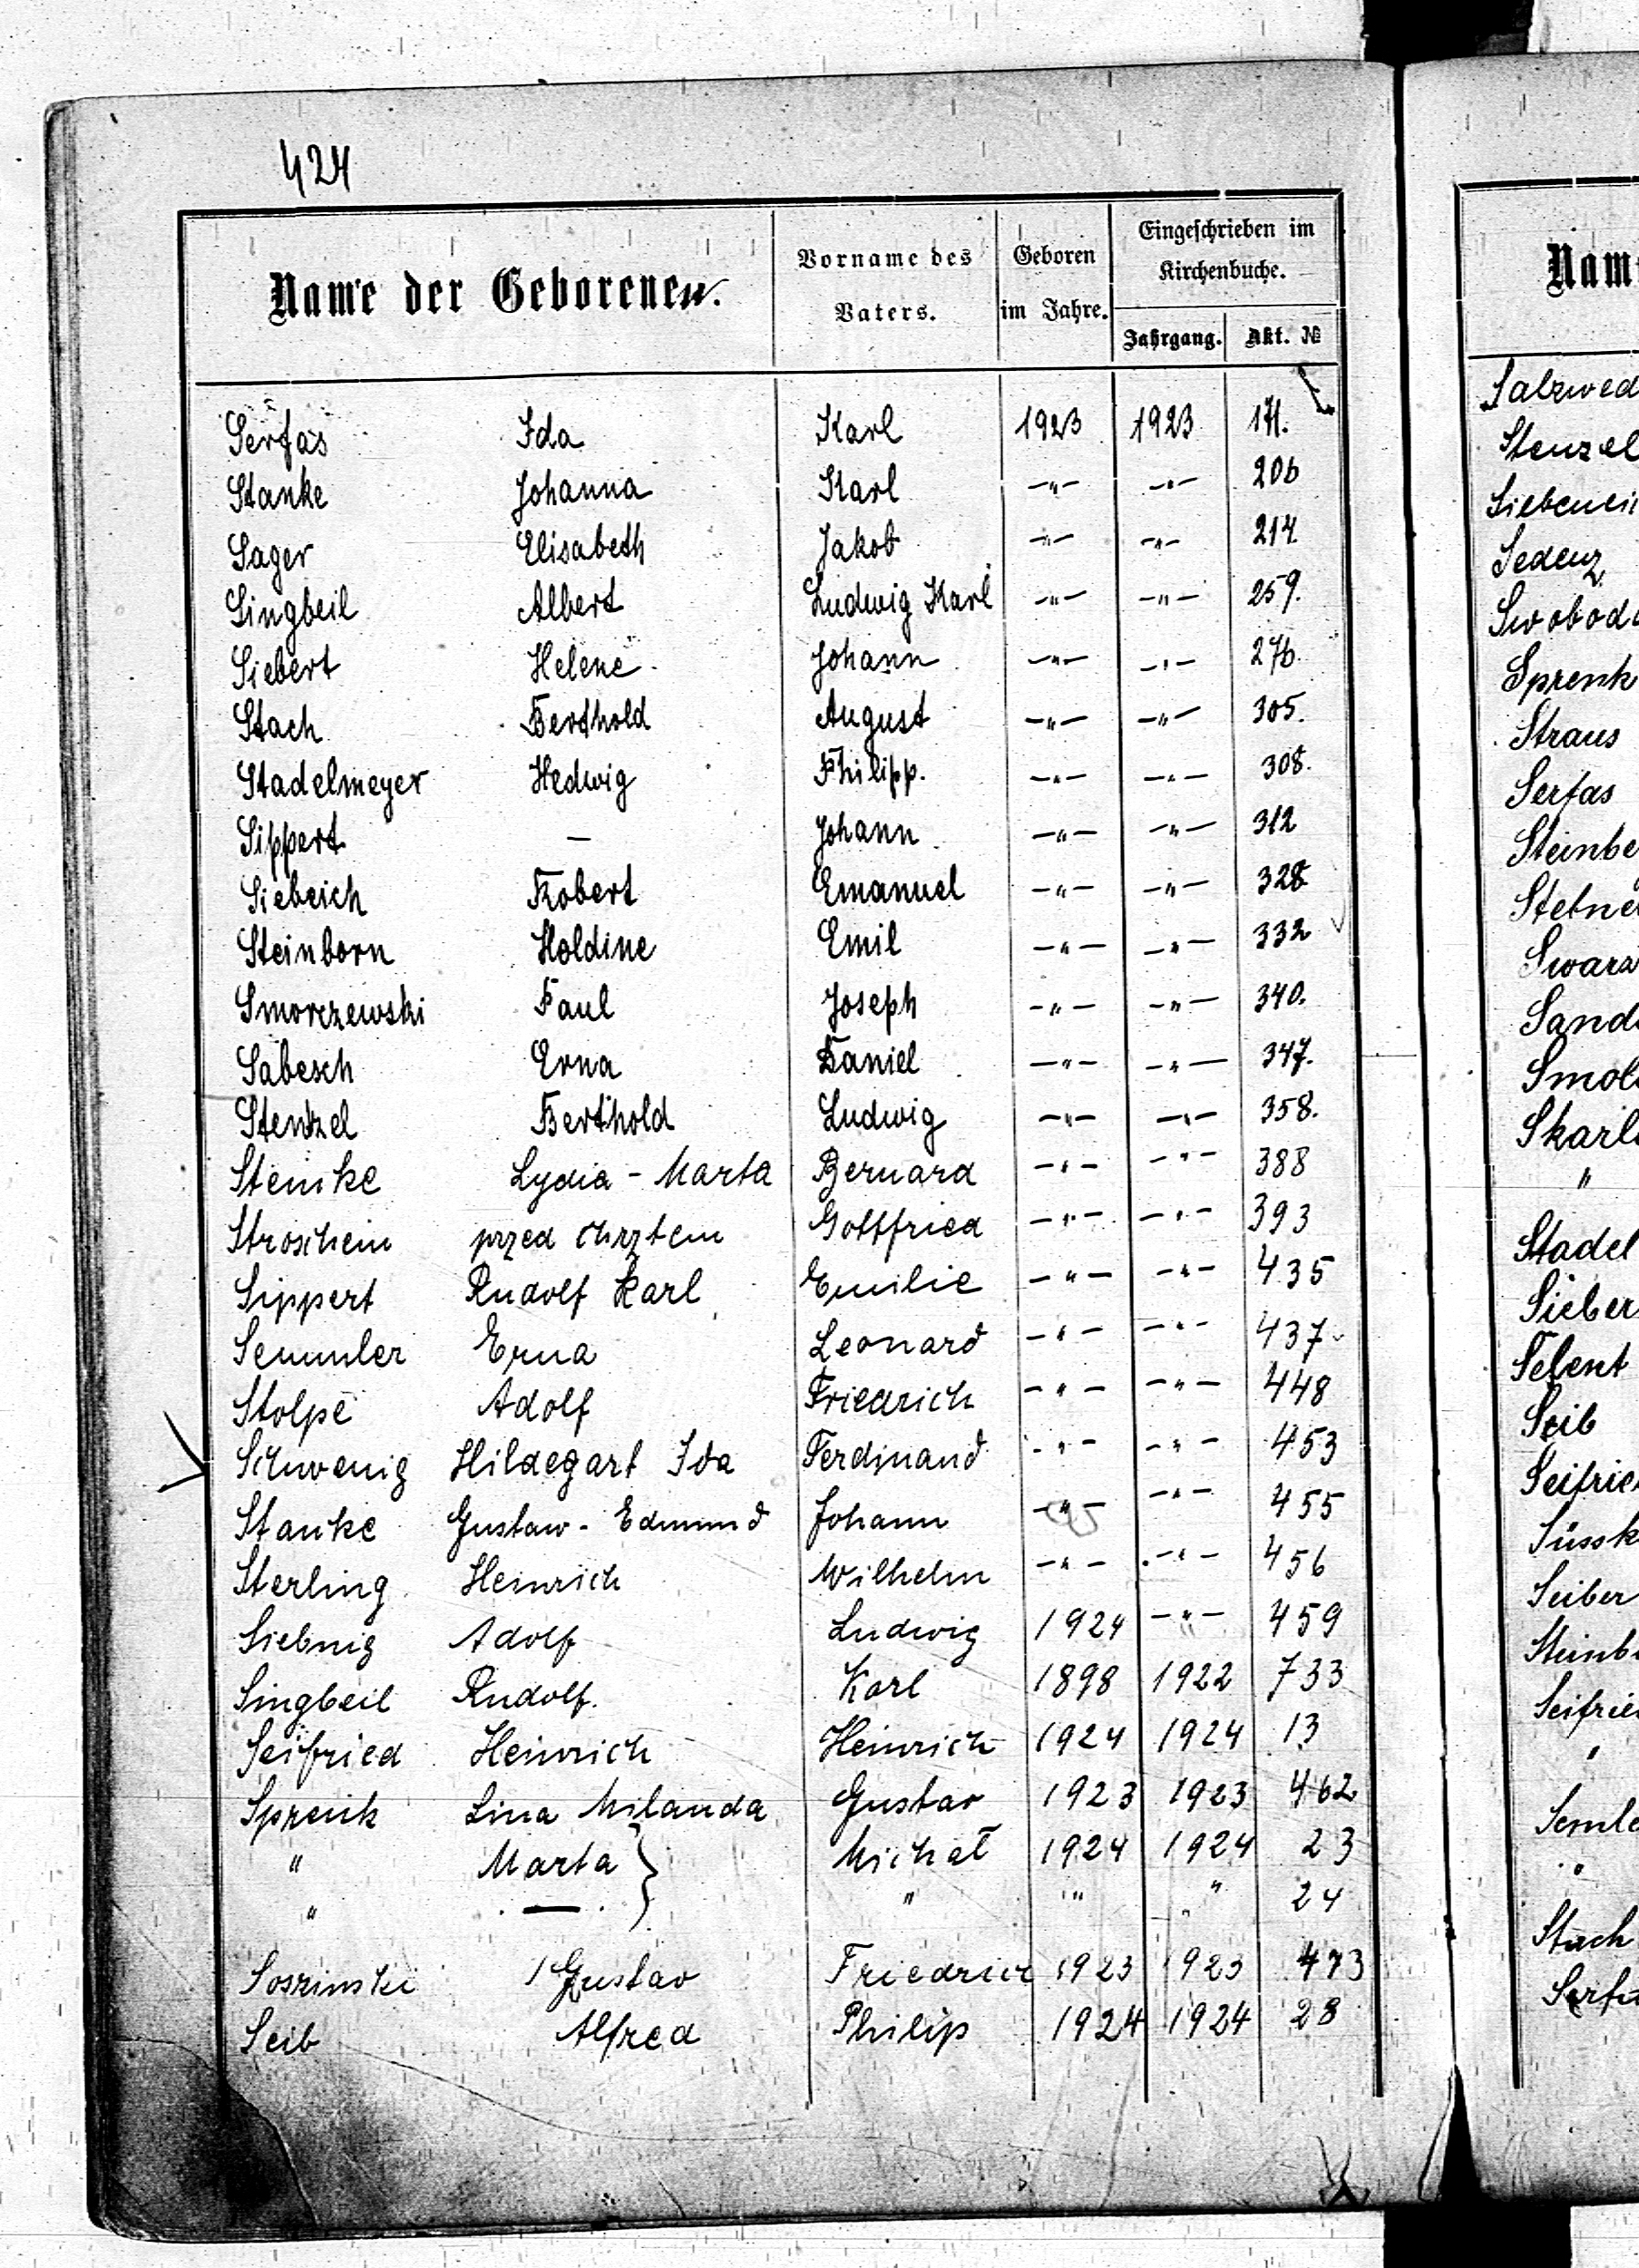 424
Name der Geborenen.
Vorname des Vaters.
Geboren im Jahre.
Eingeschrieben im Kirchenbuche.
Jahrgang. Akt. №
Serfas Ida Karl 1923 1923 171.
Stanke Johanna Karl -"- -"- 206
Sager Elisabeth Jakob -"- -"- 214
Singbeil Albert Ludwig Karl -"- -"- 259.
Siebert Helene Johann -"- -"- 276.
Stach Berthold August -"- -"- 305.
Stadelmeyer Hedwig Philipp. -"- -"- 308.
Sippert — Johann -"- -"- 312
Siebeich Robert Emanuel -"- -"- 328
Steinborn Holdine Emil -"- -"- 332
Smorczewski Paul Joseph -"- -"- 340.
Sabesch Erna Daniel -"- -"- 347.
Stenzel Berthold Ludwig -"- -"- 358.
Steinke Lydia - Marta Bernard -"- -"- 388
Stroschein przed chrztem Gottfried -"- -"- 393
Sippert Rudolf Karl Emilie -"- -"- 435
Semmler Erna Leonard -"- -"- 437
Stolpe Adolf Friedrich -"- -"- 448
Schwenig Hildegart Ida Ferdinand -"- -"- 453
Stanke Gustaw - Edmund Johann -"- -"- 455
Sterling Heinrich Wilhelm -"- -"- 456
Siebnig Adolf Ludwig 1924 -"- 459
Singbeil Rudolf. Karl 1898 1922 733
Seifried Heinrich Heinrich 1924 1924 13
Sprenk Lina Milanda Gustav 1923 1923 462
" Marta } Michał 1924 1924 23
" — } " " " 24
Soszinski Gustav Friedrich 1923 1923 473
Seib Alfred Philip 1924 1924 28
Nam
Salzwed
Stenzel
Siebenei
Sedenz
Swoboda
Sprenk
Straus
Serfas
Steinbe
Swarz
Sand
Smol
Skarl
"
Stadel
Sieber
Seib
Seifrie
Süssk
Seiber
Steinb
Seifrie
"
Semle
"
Stach
Serfa